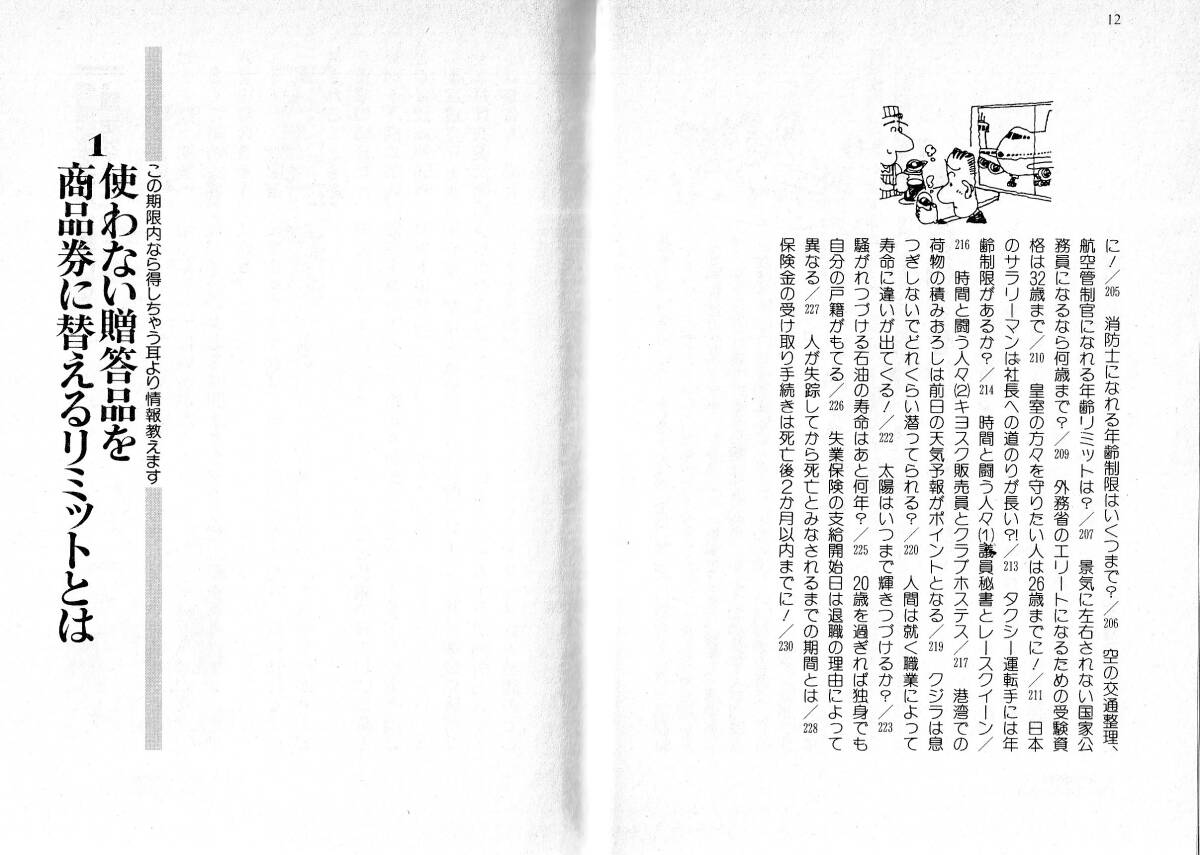 12
に！／205　消防士になれる年齢制限はいくつまで？／206　空の交通整理、
航空管制官になれる年齢リミットは？／207　景気に左右されない国家公
務員になるなら何歳まで？／209　外務省のエリートになるための受験資
格は32歳まで／210　皇室の方々を守りたい人は26歳までに！／211　日本
のサラリーマンは社長への道のりが長い？！／213　タクシー運転手には年
齢制限があるか？／214　時間と闘う人々(1)議員秘書とレースクイーン／
216　時間と闘う人々(2)キヨスク販売員とクラブホステス／217　港湾での
荷物の積みおろしは前日の天気予報がポイントとなる／219　クジラは息
つぎしないでどれくらい潜ってられる？／220　人間は就く職業によって
寿命に違いが出てくる！／222　太陽はいつまで輝きつづけるか？／223
騒がれつづける石油の寿命はあと何年？／225　20歳を過ぎれば独身でも
自分の戸籍がもてる／226　失業保険の支給開始日は退職の理由によって
異なる／227　人が失踪してから死亡とみなされるまでの期間とは／228
保険金の受け取り手続きは死亡後2か月以内までに！／230
この期限内なら得しちゃう耳より情報教えます
1
使わない贈答品を
商品券に替えるリミットとは